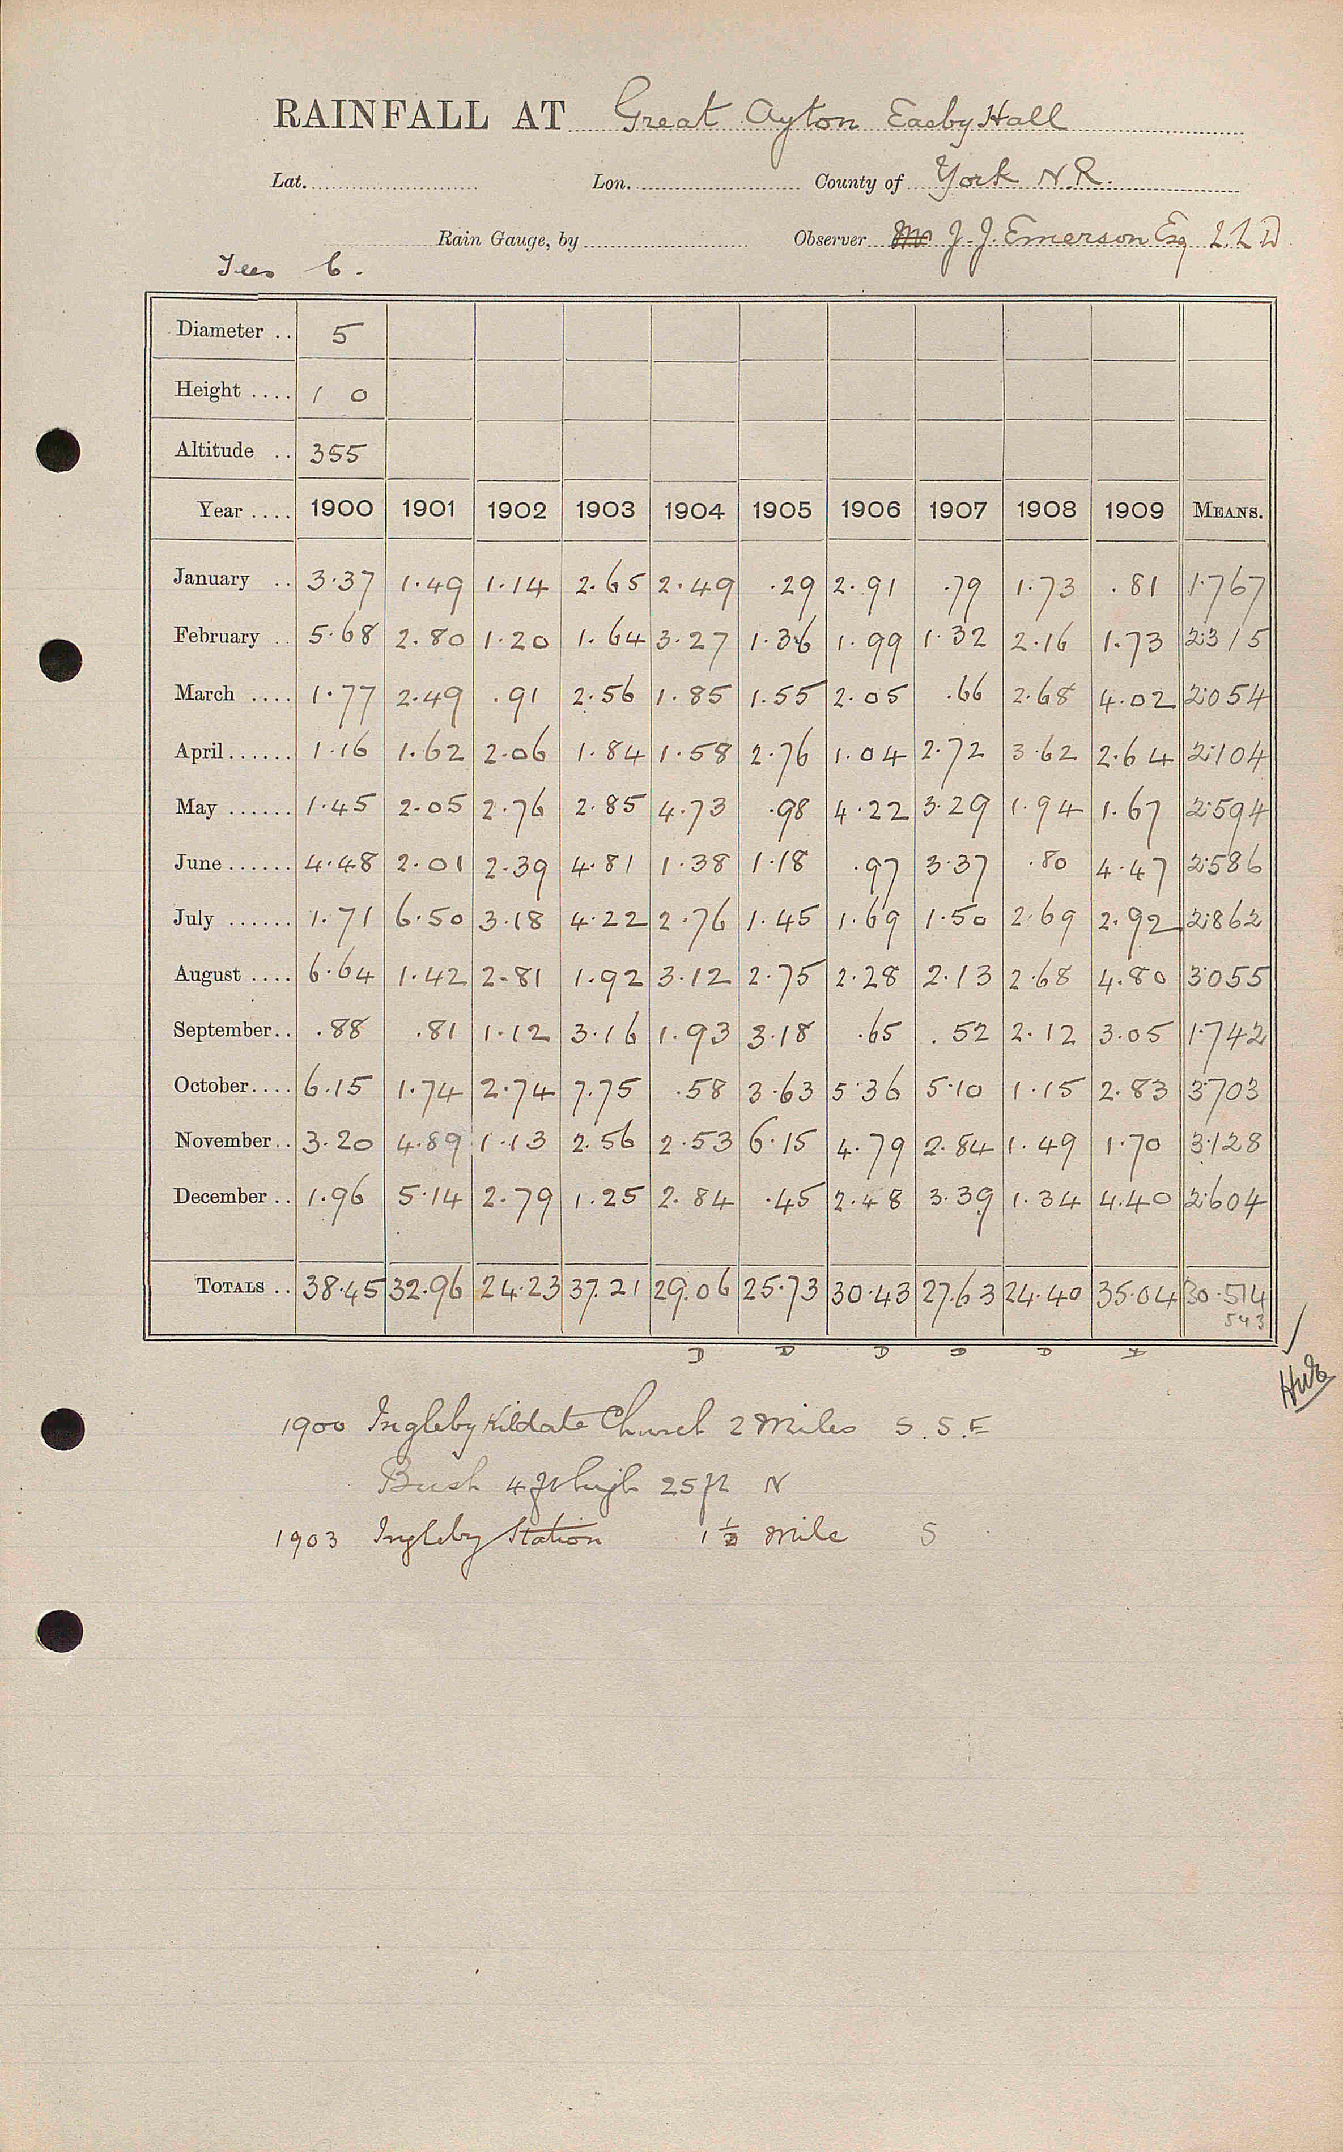 RAINFALL AT Great Ayton Easby Hall
Lat. Lon. County of York N.R.
Rain Gauge, by Observer J. J. Emerson Esq LLD
Tees 6.
Diameter .. 5
Height .... 1 0
Altitude .. 355
Year .... 1900 1901 1902 1903 1904 1905 1906 1907 1908 1909 MEANS.
January .. 3.37 1.49 1.14 2.65 2.49 .29 2.91 .79 1.73 .81 1.767
February .. 5.68 2.80 1.20 1.64 3.27 1.36 1.99 1.32 2.16 1.73 2.315
March .... 1.77 2.49 .91 2.56 1.85 1.55 2.05 .66 2.68 4.02 2.054
April ...... 1.16 1.62 2.06 1.84 1.58 2.76 1.04 2.72 3.62 2.64 2.104
May ...... 1.45 2.05 2.76 2.85 4.73 .98 4.22 3.29 1.94 1.67 2.594
June ...... 4.48 2.01 2.39 4.81 1.38 1.18 .97 3.37 .80 4.47 2.586
July ...... 1.71 6.50 3.18 4.22 2.76 1.45 1.69 1.50 2.69 2.92 2.862
August .... 6.64 1.42 2.81 1.92 3.12 2.75 2.28 2.13 2.68 4.80 3.055
September.. .88 .81 1.12 3.16 1.93 3.18 .65 .52 2.12 3.05 1.742
October.... 6.15 1.74 2.74 7.75 .58 3.63 5.36 5.10 1.15 2.83 3.703
November.. 3.20 4.89 1.13 2.56 2.53 6.15 4.79 2.84 1.49 1.70 3.128
December .. 1.96 5.14 2.79 1.25 2.84 .45 2.48 3.39 1.34 4.40 2.604
TOTALS .. 38.45 32.96 24.23 37.21 29.06 25.73 30.43 27.63 24.40 35.04 30.514
543
D D D D D
1900 Ingleby Kildale Church 2 Miles S.S.E
Bush 4 ft high 25 ft N
1903 Ingleby Station 1 1/2 Mile S